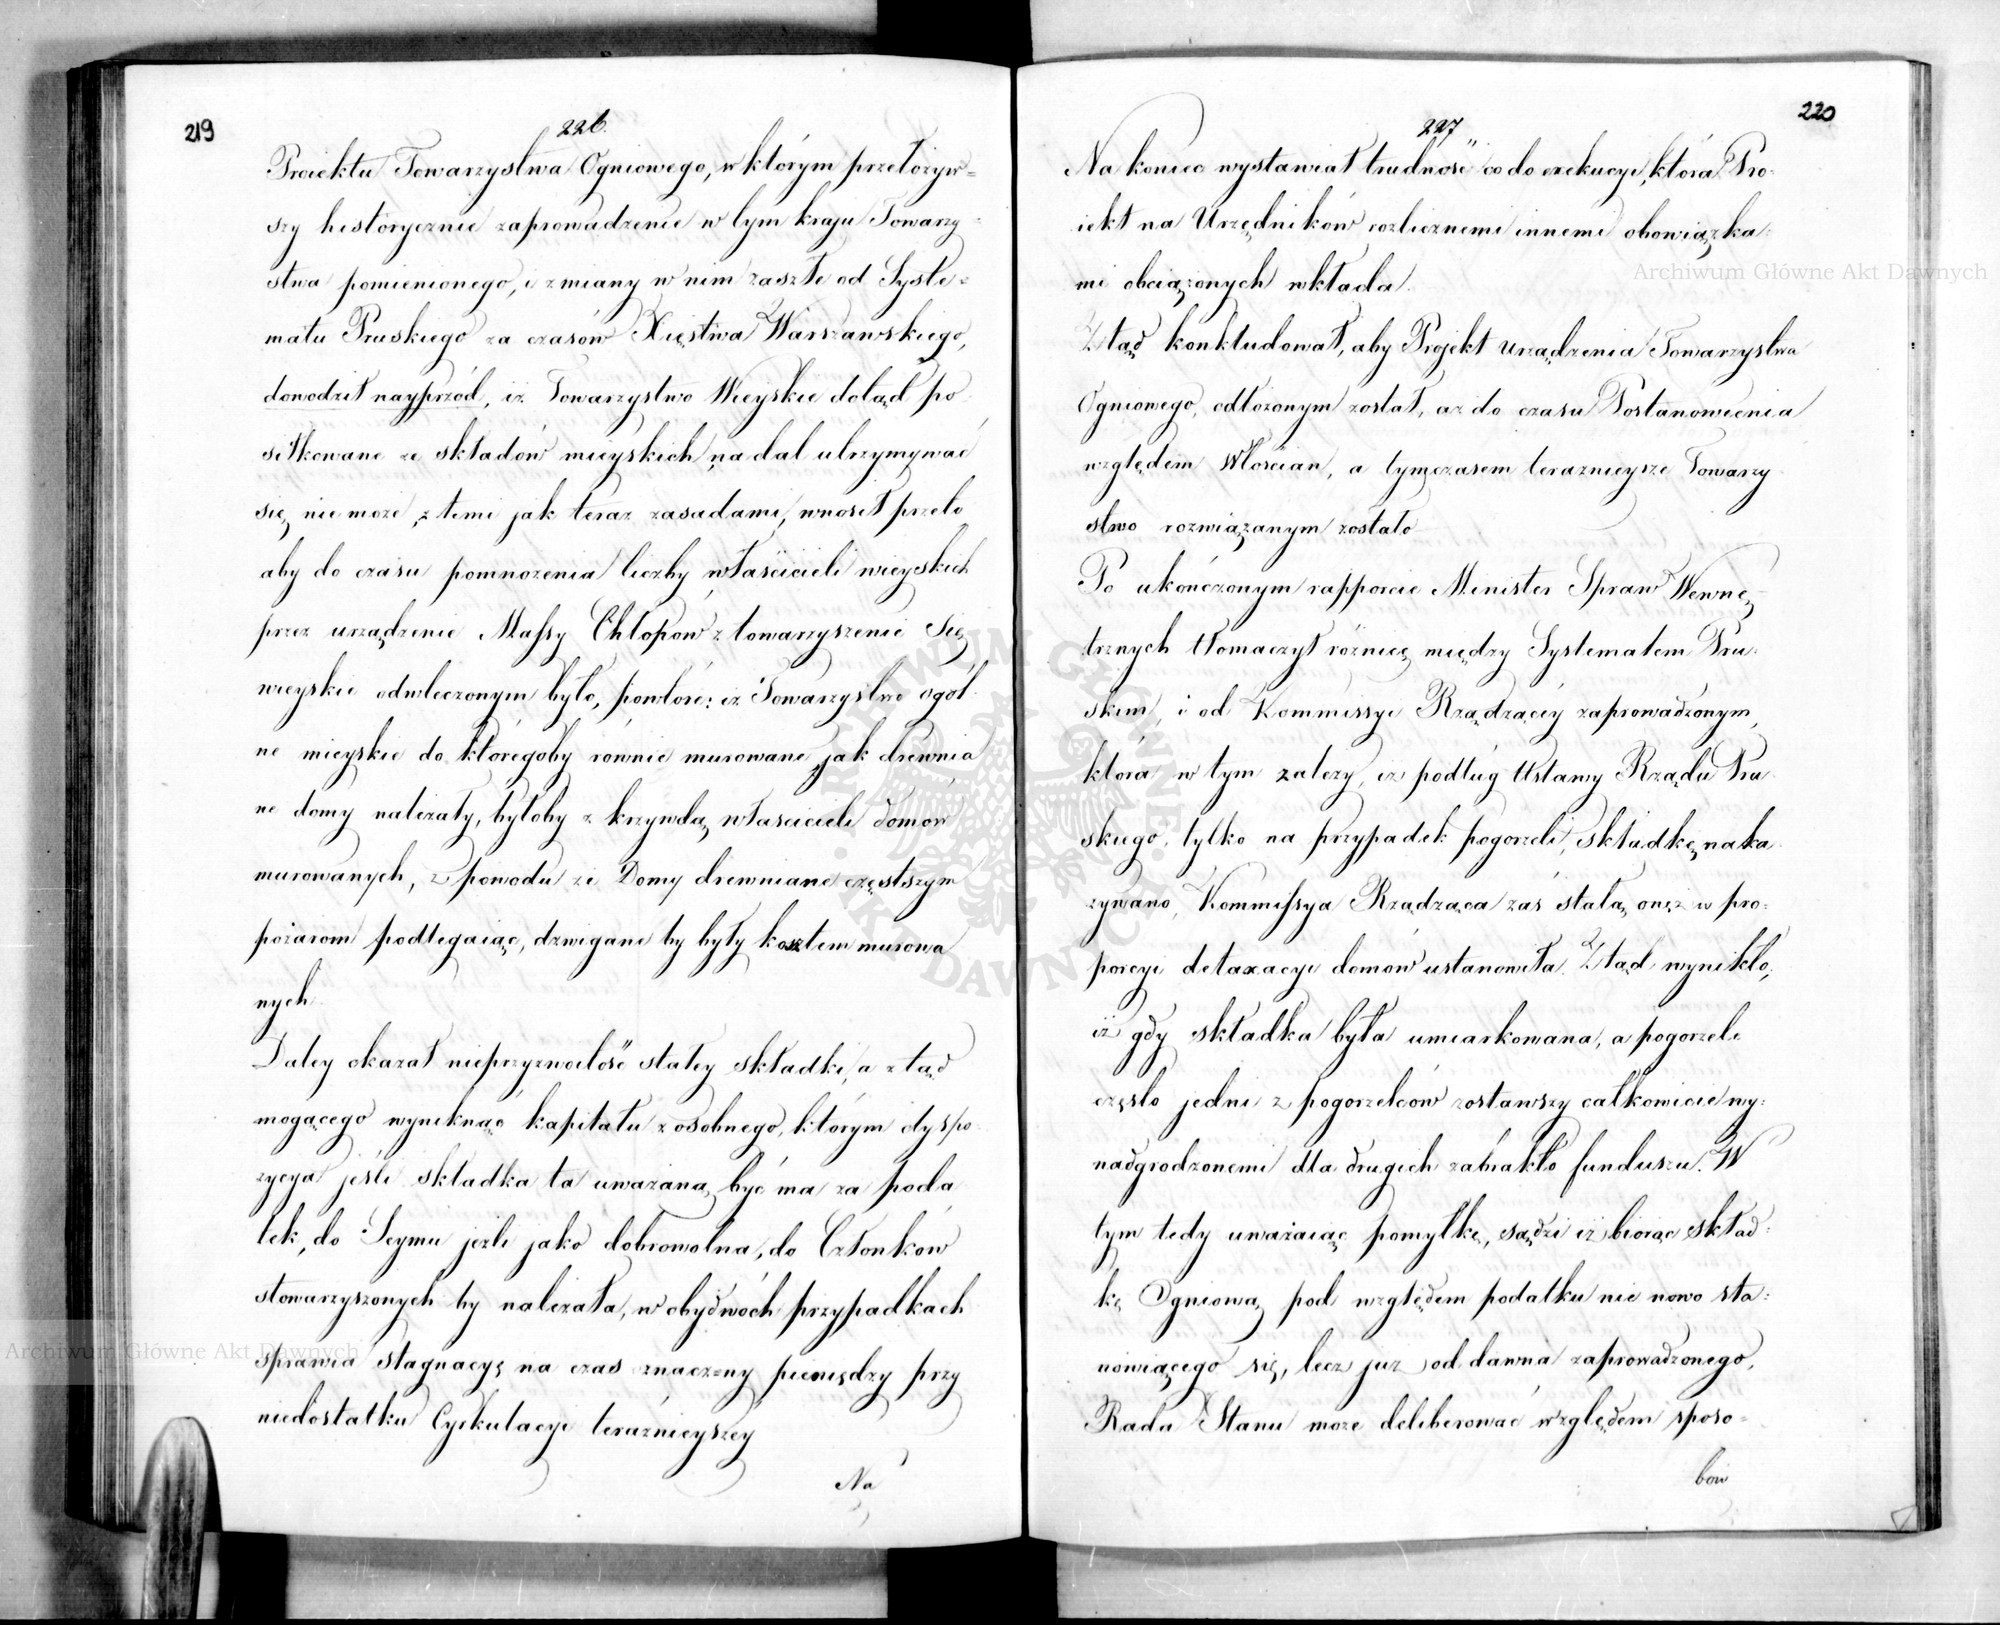 219
226.
Proiektu Towarzystwa Ogniowego, w którym przełożyw=
szy historycznie zaprowadzenie w tym kraju Towarzy=
stwa pomienionego, i zmiany w nim zaszłe od Syste=
matu Pruskiego za czasów Xięstwa Warszawskiego,
dowodził nayprzód, iż Towarzystwo Wieyskie dotąd po
siłkowane ze składów mieyskich, na dal utrzymywać
się, nie może, z temi jak teraz zasadami, wnosił przeto
aby do czasu pomnożenia liczby właścicieli wieyskich
przez urządzenie Massy Chłopów ztowarzyszenie Się
wieyskie odwleczonym było, powtóre: iż Towarzystwo ogól
ne mieyskie do któregoby równie murowane jak drewnia
ne domy należały, byłoby z krzywdą właścicieli domów
murowanych, z powodu że Domy drewniane częstszym
pożarom podlegaiąc, dzwigane by były kosztem murowa
nych.
Daley okazał nieprzyzwoitość stałey składki, a ztąd
mogącego wyniknąć kapitału z osobnego, którym dyspo
zycya jeśli składka ta uważaną być ma za poda
tek, do Seymu jeżli jako dobrowolna, do Członków
stowarzyszonych by należała, w obydwóch przypadkach
sprawia stagnacyę na czas znaczny pieniędzy przy
niedostatku Cyrkulacyi teraźnieyszey
Na
220
227
Na koniec wystawiał trudność co do exekucyi, którą Pro
iekt na Urzędników rozlicznemi innemi obowiązka
mi obciążonych wkłada.
Ztąd konkludował, aby Projekt urządzenia Towarzystwa
Ogniowego, odłożonym został, aż do czasu Postanowienia
względem Włościan, a tymczasem teraznieysze Towarzy
stwo rozwiązanym zostało
Po ukończonym rapporcie Minister Spraw Wewnę
trznych tłomaczył różnicę między Systematem Pru
skim, i od Kommissyi Rządzącey zaprowadzonym,
która w tym zależy, iż podług Ustawy Rządu Pru
skiego, tylko na przypadek pogorzeli, składkę naka
zywano, Kommissya Rządząca zaś stałą onęż w pro=
porcyi detaxacyi domów ustanowiła. Ztąd wynikło,
iż gdy składka była umiarkowana, a pogorzele
często jedni z pogorzelców zostawszy całkowicie wy=
nadgrodzonemi dla drugich zabrakło funduszu. W
tym tedy uważaiąc pomyłkę, sądzi iż biorąc Skład=
kę Ogniową pod względem podatku nie nowo sta=
nowiącego się, lecz już od dawna zaprowadzonego,
Rada Stanu może deliberować względem sposo=
bów
Archiwum Główne Akt Dawnych
Archiwum Główne Akt Dawnych
ARCHIWUM GŁÓWNE AKT DAWNYCH